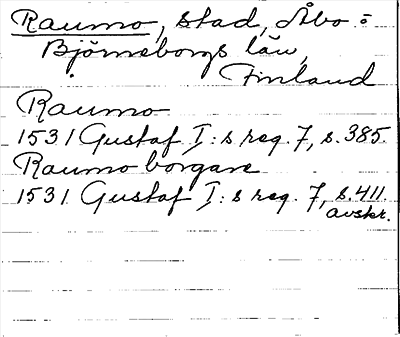 Raumo, stad, Åbo =
Björneborgs län,
Finland
Raumo
1531 Gustaf I:s reg. 7, s. 385.
Raumo borgare
1531 Gustaf I:s reg. 7, s. 411.
avskr.